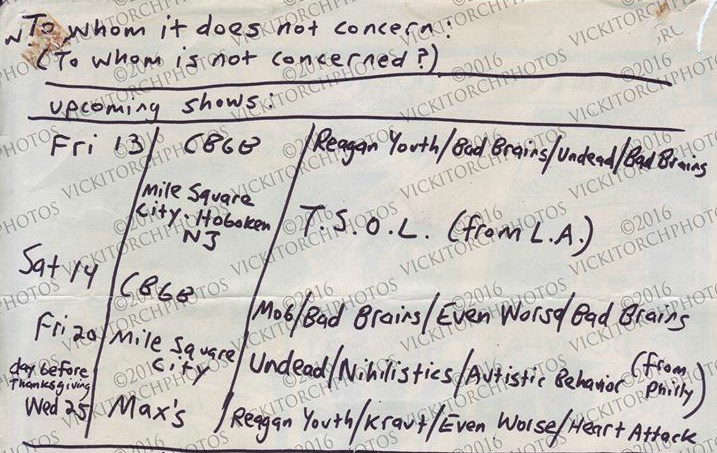 To whom it does not concern:
(To whom is not concerned?)
upcoming shows:
Fri 13 / CBGB / Reagan Youth/Bad Brains/Undead/Bad Brains
Mile Square
City · Hoboken
NJ
T.S.O.L. (from L.A.)
Sat 14 / CBGB / Mob/Bad Brains/Even Worse/Bad Brains
Fri 20 / Mile Square
City / Undead/Nihilistics/Autistic Behavior (from
Philly)
day before
Thanksgiving
Wed 25 / Max's / Reagan Youth/Kraut/Even Worse/Heart Attack
©2016
VICKITORCHPHOTOS